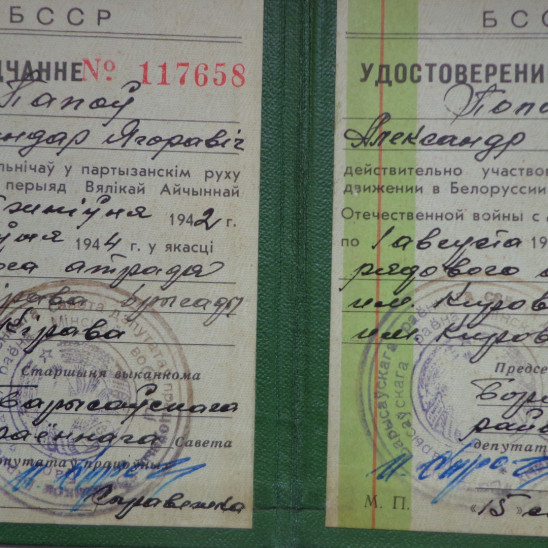 БССР
ДЧАННЕ № 117658
Папоў
ндар Ягоравіч
льнічаў у партызанскім руху
перыяд Вялікай Айчыннай
1942 г.
1944 г. у якасці
атрада
брыгады
Кірава
Старшыня выканкома
Барысаўскага
раённага Савета
дэпутатаў працоўных
БСС
УДОСТОВЕРЕНИ
Попо
Александр
действительно участвов
движении в Белоруссии
Отечественной войны с
по 1 августа 19
рядового
им. Киров
им. Киров
Предсе
Бори
рай
депутато
М. П. "15"